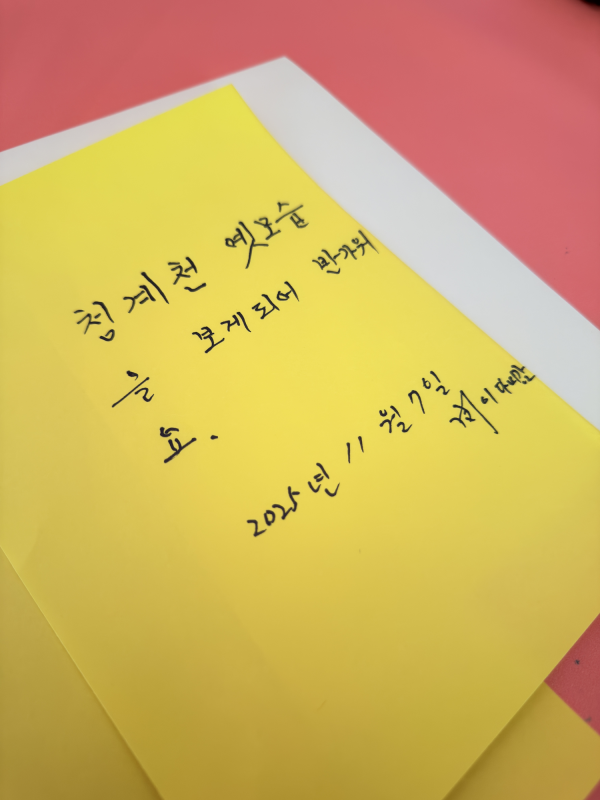 청계천 옛모습
을 보게 되어 반가워
요.
2025년 11월 7일
이다만